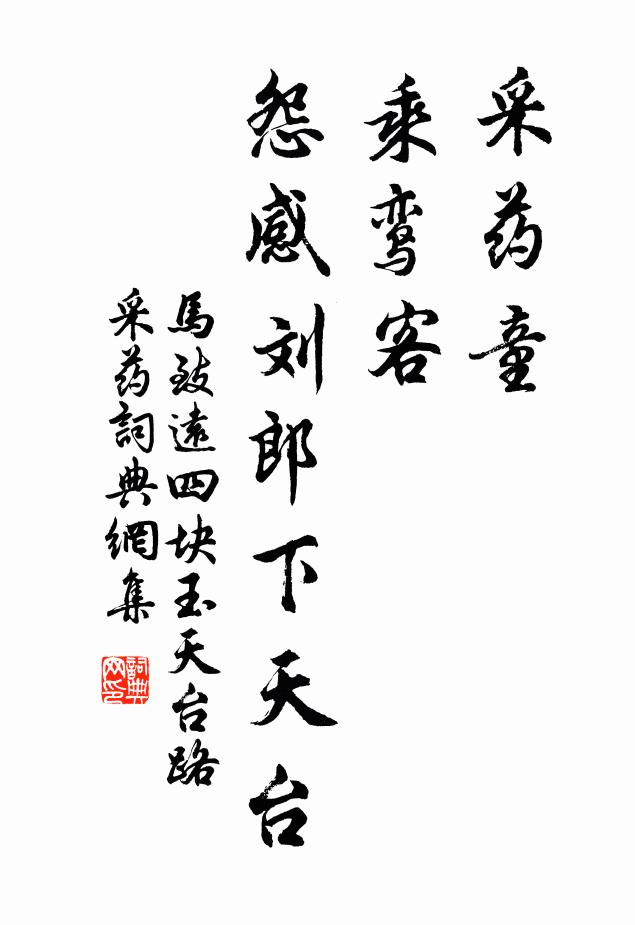 采药童
乘鸾客
怨感刘郎下天台
馬致遠四块玉天台路
采药詞典網集
詞典
网印